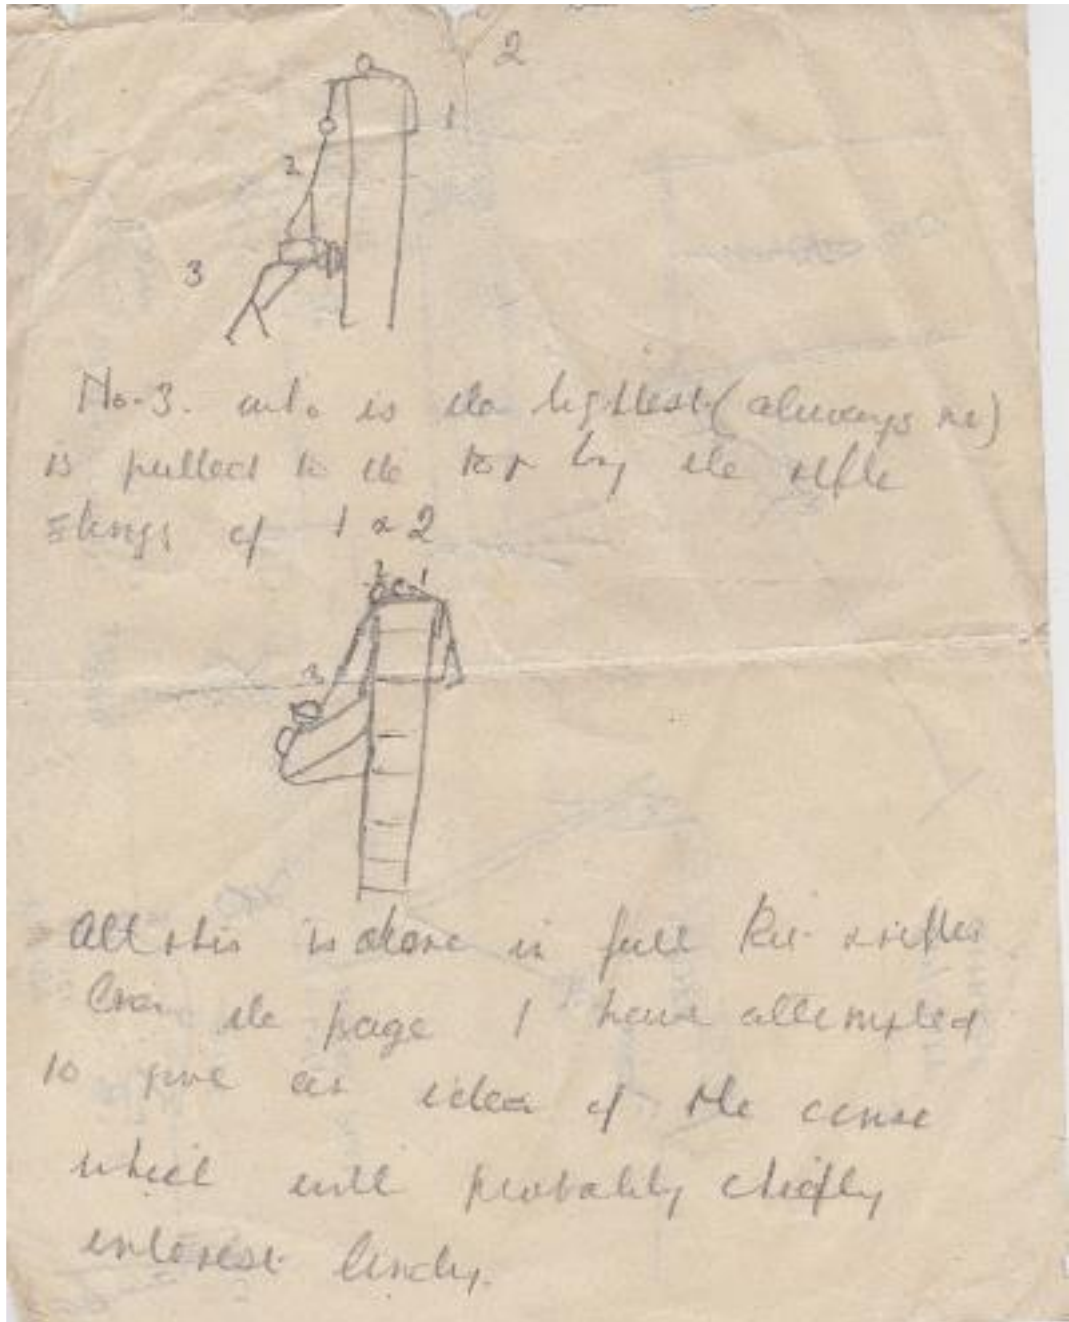 2
1
2
3
No. 3. who is the lightest (always me)
is pulled to the top by the rifle
slings of 1 & 2
2 1
3
All this is done in full kit & rifles
Over the page I have attempted
to give an idea of the course
which will probably chiefly
interest Lindy.